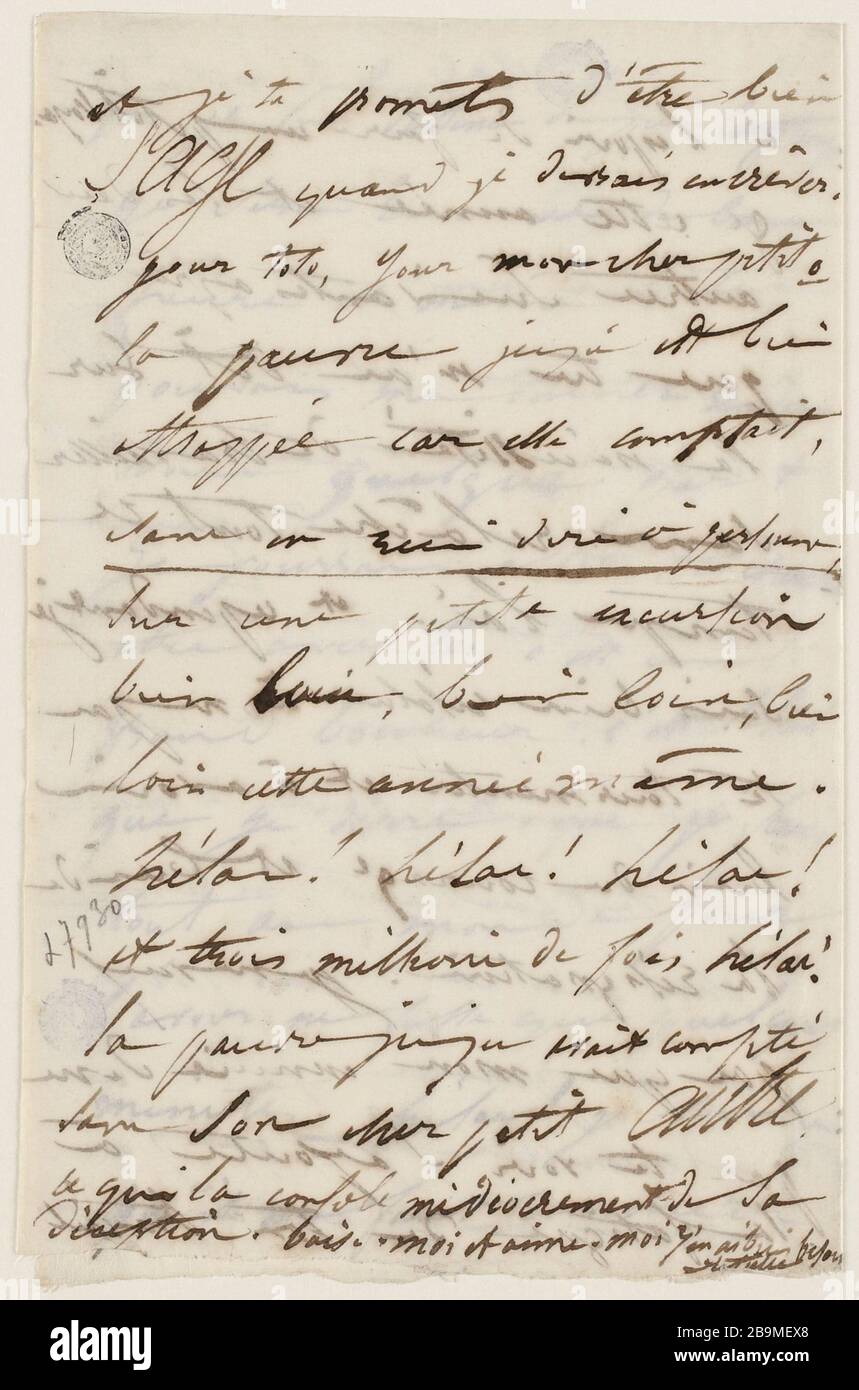 et je te promets d'être bien
SAGE quand je devrais en crever.
pour toto, pour mon cher petit o
la pauvre juju est bien
attrappée car elle comptait,
sans en rien dire à personne,
sur une petite excursion
bien loin, bien loin, bien
loin cette année même.
hélas! hélas! hélas!
et trois millions de fois hélas!
la pauvre juju avait compté
sans son cher petit AUTRE
ce qui la console médiocrement de sa
déception. baise-moi et aime-moi j'en ai bien besoin
Juliette
47930
alamy
Image ID: 2B9MEX8
www.alamy.com